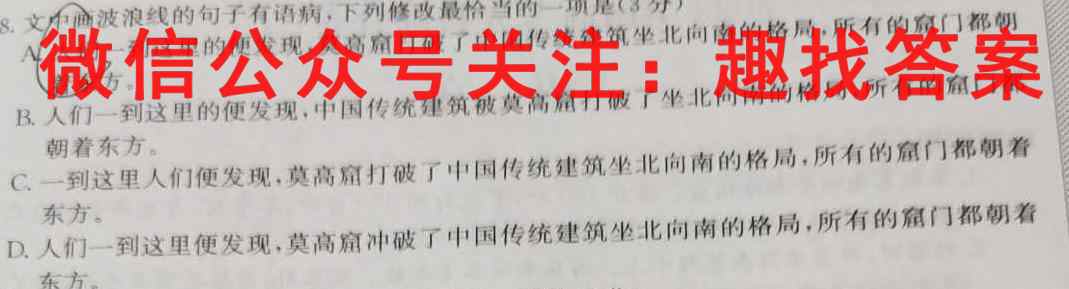 8. 文中画波浪线的句子有语病,下列修改最恰当的一项是(3分)
微信公众号关注：趣找答案
A. 一到这里的便发现,莫高窟打破了中国传统建筑坐北向南的格局,所有的窟门都朝
着东方。
B. 人们一到这里的便发现,中国传统建筑被莫高窟打破了坐北向南的格局,所有的窟门都
朝着东方。
C. 一到这里人们便发现,莫高窟打破了中国传统建筑坐北向南的格局,所有的窟门都朝着
东方。
D. 人们一到这里便发现,莫高窟冲破了中国传统建筑坐北向南的格局,所有的窟门都朝着
东方。